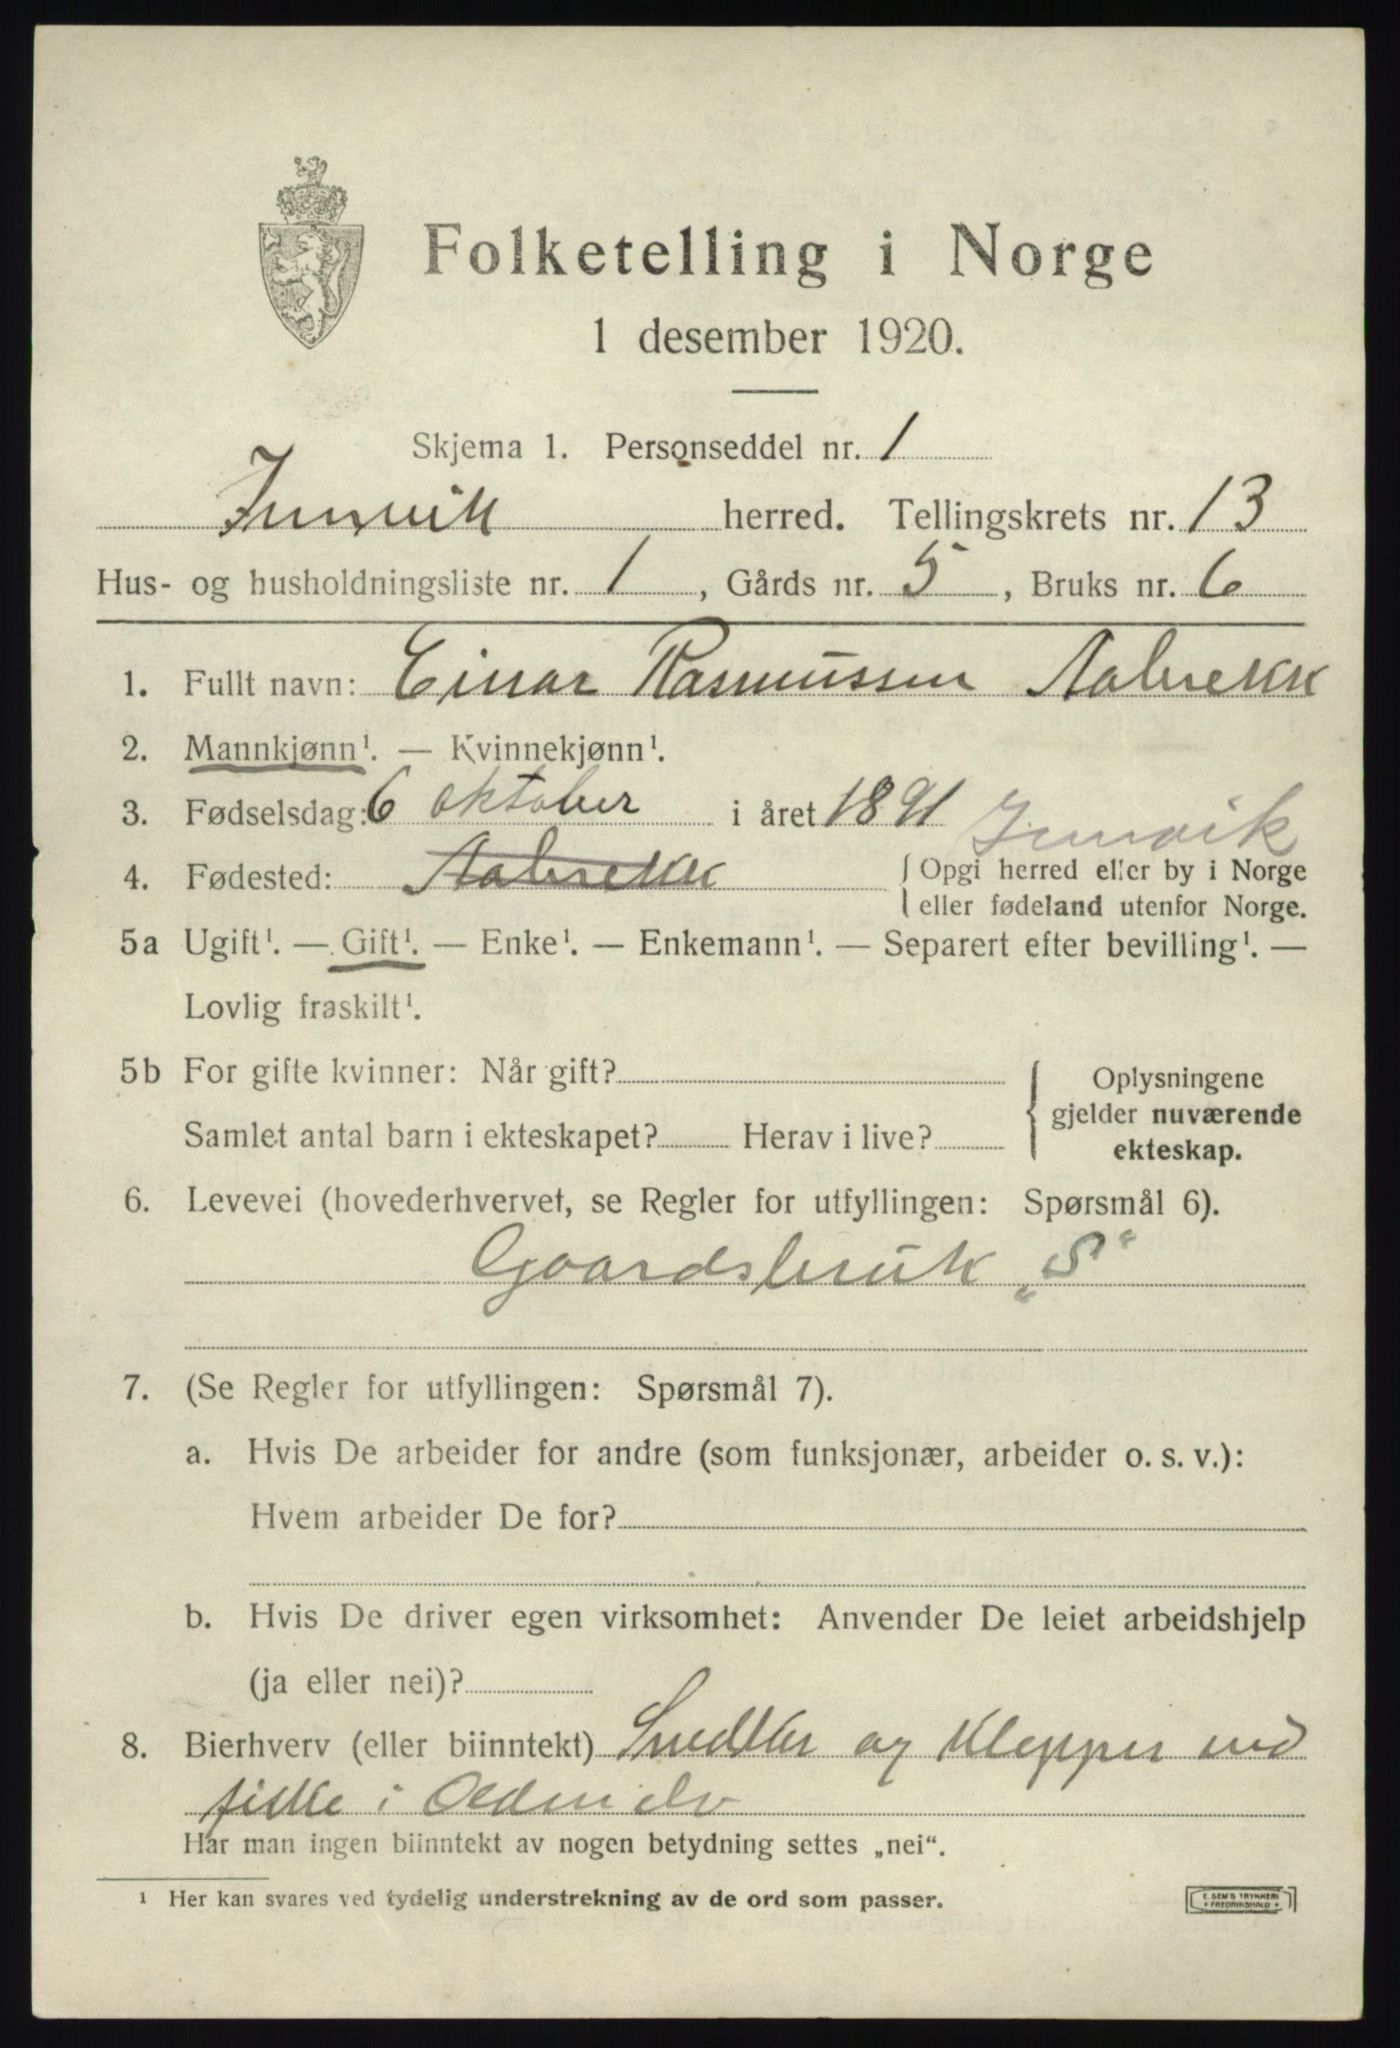 Folketelling i Norge
1 desember 1920.
Skjema 1. Personseddel nr. 1
Innvik herred. Tellingskrets nr. 13
Hus- og husholdningsliste nr. 1, Gårds nr. 5, Bruks nr. 6
1. Fullt navn: Einar Rasmussen Aabrekk
2. Mannkjønn¹. — Kvinnekjønn¹.
3. Fødselsdag: 6 oktober i året 1891
Innvik
4. Fødested: Aabrekk { Opgi herred eller by i Norge
eller fødeland utenfor Norge.
5a Ugift¹. — Gift¹. — Enke¹. — Enkemann¹. — Separert efter bevilling¹. —
Lovlig fraskilt¹.
5b For gifte kvinner: Når gift? { Oplysningene
gjelder nuværende
Samlet antal barn i ekteskapet? Herav i live?
ekteskap.
6. Levevei (hovederhvervet, se Regler for utfyllingen: Spørsmål 6).
Gaardsbruk „S“
7. (Se Regler for utfyllingen: Spørsmål 7).
a. Hvis De arbeider for andre (som funksjonær, arbeider o. s. v.):
Hvem arbeider De for?
b. Hvis De driver egen virksomhet: Anvender De leiet arbeidshjelp
(ja eller nei)?
8. Bierhverv (eller biinntekt) og Klepper ved
fiske i Olden elv
Har man ingen biinntekt av nogen betydning settes „nei“.
¹ Her kan svares ved tydelig understrekning av de ord som passer.
E. SEM'S TRYKKERI
* FREDRIKSHALD *